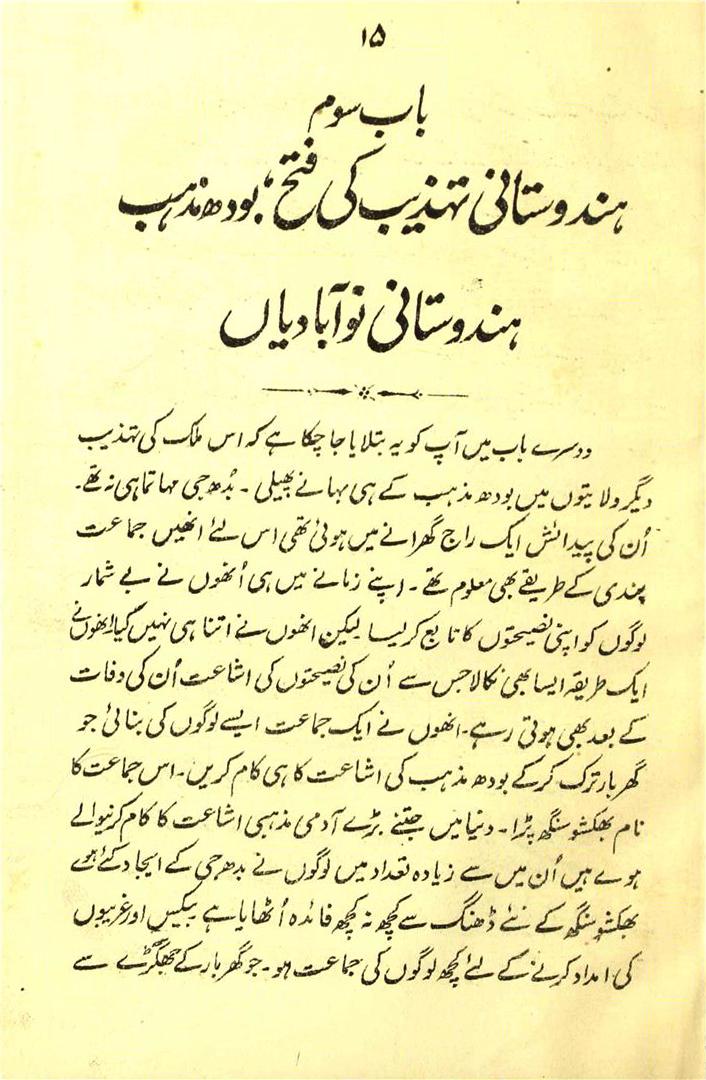 ۱۵
باب سوم
ہندوستانی تہذیب کی فتح؛ بودھ مذہب
ہندوستانی نوآبادیاں
دوسرے باب میں آپ کو یہ بتلایا جا چکا ہے کہ اس ملک کی تہذیب
دیگر ولایتوں میں بودھ مذہب کے ہی بہانے پھیلی ۔ بُدھ جی مہاتما ہی نہ تھے ۔
اُن کی پیدائش ایک راج گھرانے میں ہوئی تھی اس لئے انھیں جماعت
بندی کے طریقے بھی معلوم تھے ۔ اپنے زمانے میں ہی اُنھوں نے بے شمار
لوگوں کو اپنی نصیحتوں کا تابع کر لیا لیکن انھوں نے اتنا ہی نہیں گیا انھوں نے
ایک طریقہ ایسا بھی نکالا جس سے اُن کی نصیحتوں کی اشاعت اُن کی وفات
کے بعد بھی ہوتی رہے ۔ انھوں نے ایک جماعت ایسے لوگوں کی بنائی جو
گھر بار ترک کر کے بودھ مذہب کی اشاعت کا ہی کام کریں ۔ اس جماعت کا
نام بھکشو سنگھ پڑا ۔ دنیا میں جتنے بڑے آدمی مذہبی اشاعت کا کام کرنیوالے
ہوے ہیں اُن میں سے زیادہ تعداد میں لوگوں نے بدھ جی کے ایجاد کئے ہوے
بھکشو سنگھ کے نئے ڈھنگ سے کچھ نہ کچھ فائدہ اُٹھایا ہے بیکس اور غریبوں
کی امداد کرنے کے لئے کچھ لوگوں کی جماعت ہو ۔ جو گھر بار کے جھگڑے سے